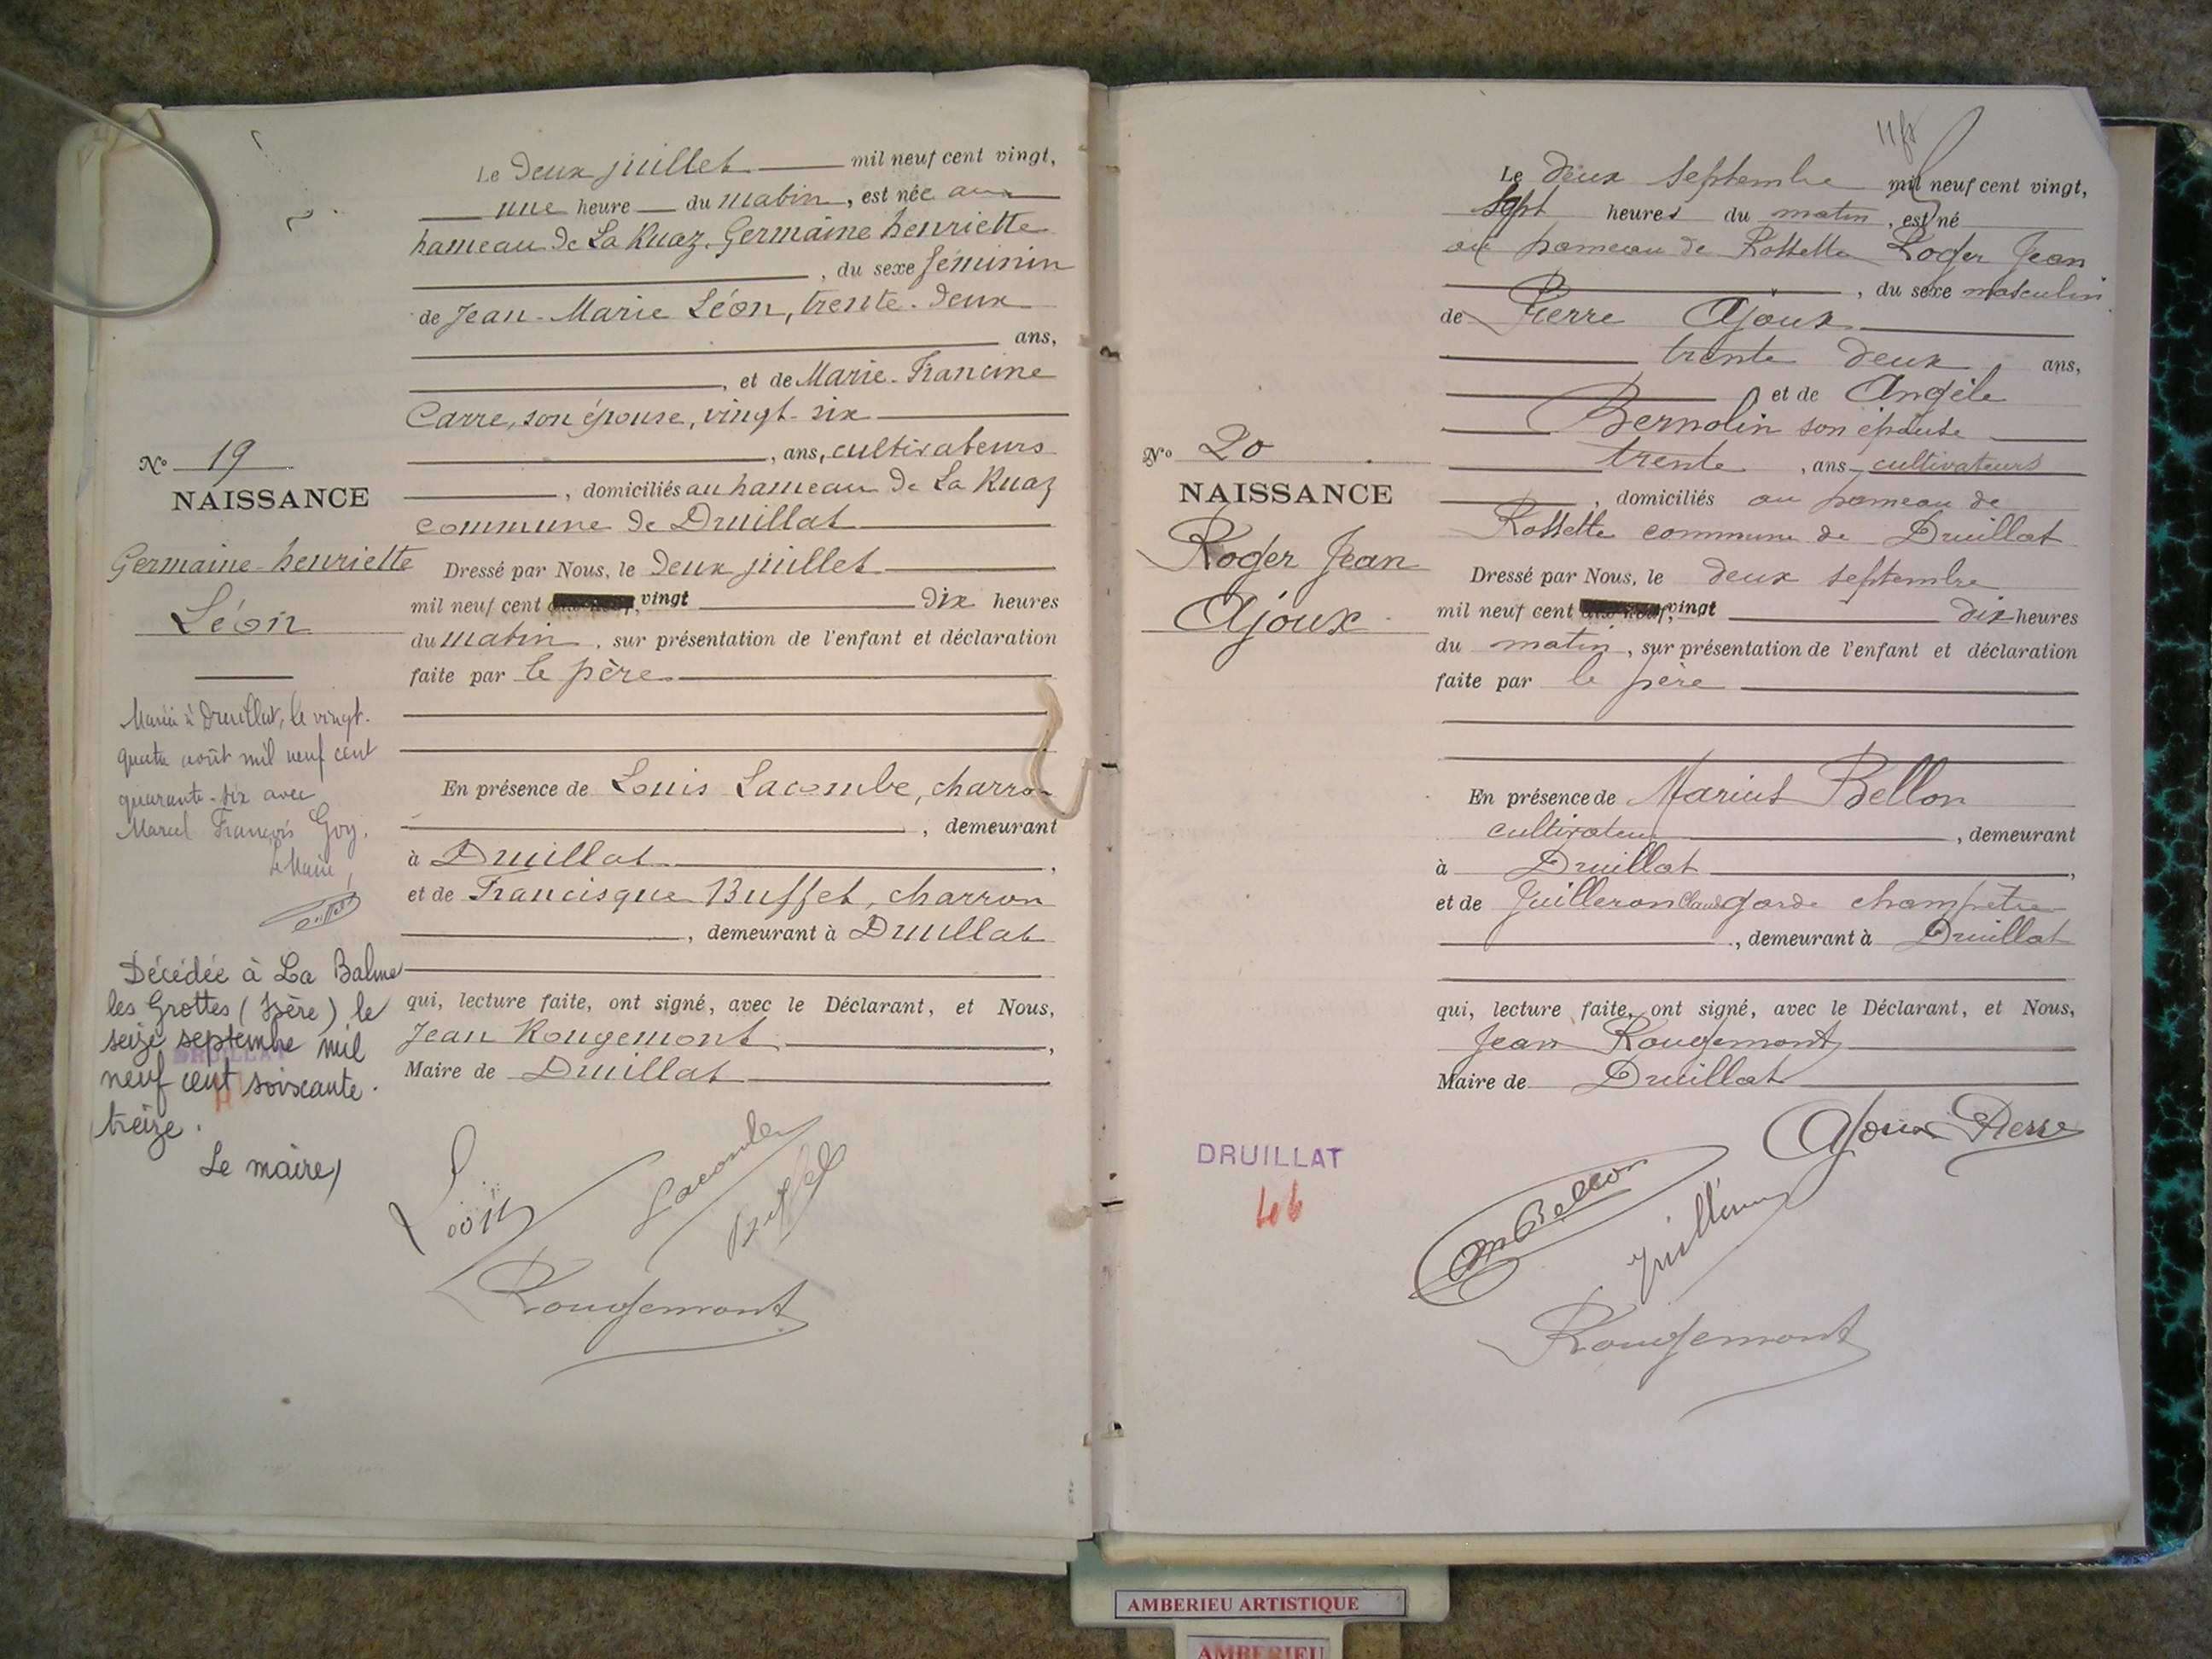 Le Deux juillet mil neuf cent vingt,
une heure du matin, est née au
hameau de La Ruaz, Germaine henriette
, du sexe féminin
de Jean-Marie Léon, trente-deux
ans,
, et de Marie-Francine
Carre, son épouse, vingt-six
, ans, cultivateurs
, domiciliés au hameau de La Ruaz
commune de Druillat
N° 19
NAISSANCE
Germaine-henriette
Léon
Dressé par Nous, le Deux juillet
mil neuf cent vingt Dix heures
du matin, sur présentation de l'enfant et déclaration
faite par le père
Mariée à Druillat, le vingt-
quatre août mil neuf cent
quarante-six avec
Marcel François Goy.
Le Maire,
En présence de Louis Lacombe, charron
, demeurant
à Druillat,
et de Francisque Buffet, charron
, demeurant à Druillat
Décédée à La Balme
les Grottes (Isère) le
seize septembre mil
neuf cent soixante-
treize.
Le maire,
DRUILLAT
qui, lecture faite, ont signé, avec le Déclarant, et Nous,
Jean Rougemont,
Maire de Druillat
Léon
Lacombe
Buffet
Rougemont
Le deux septembre mil neuf cent vingt,
Sept heures du matin, est né
au hameau de Rossette Roger Jean
, du sexe masculin
de Pierre Ajoux
trente deux ans,
et de Angèle
Bernolin son épouse
trente, ans cultivateurs
, domiciliés au hameau de
Rossette commune de Druillat
N° 20
NAISSANCE
Roger Jean
Ajoux
Dressé par Nous, le deux septembre
mil neuf cent vingt dix heures
du matin, sur présentation de l'enfant et déclaration
faite par le père
En présence de Marius Bellon
cultivateur, demeurant
à Druillat,
et de Juilleron Claude garde champêtre
, demeurant à Druillat
qui, lecture faite, ont signé, avec le Déclarant, et Nous,
Jean Rougemont
Maire de Druillat
DRUILLAT
46
Ajoux Pierre
M Bellon
Juilleron
Rougemont
AMBERIEU ARTISTIQUE
AMBERIEU